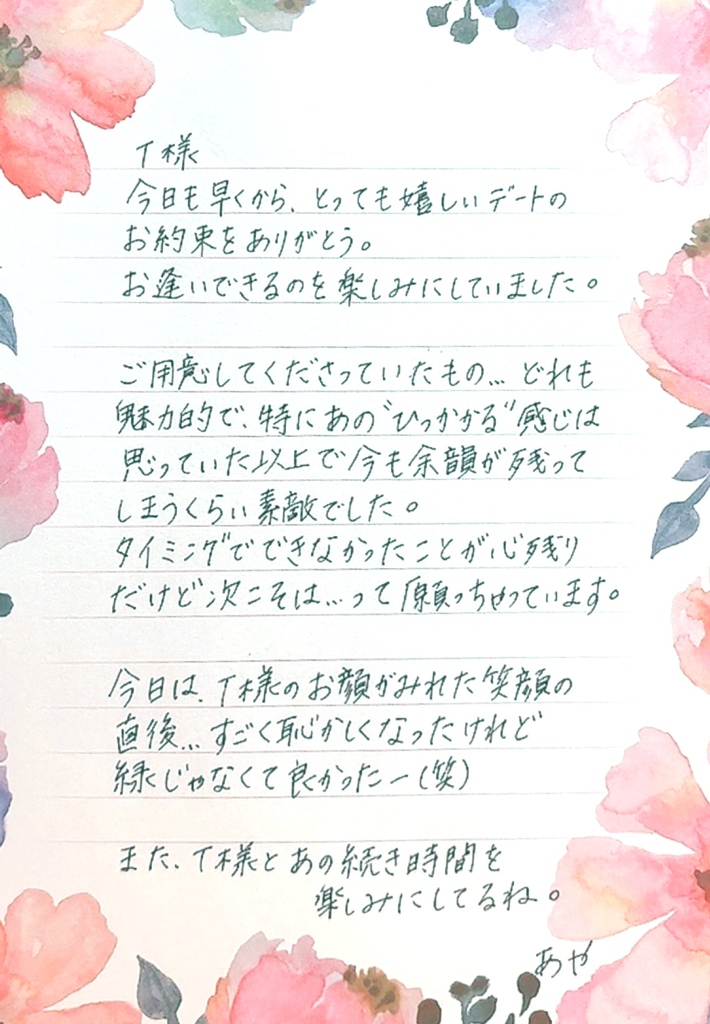 T様
今日も早くから、とっても嬉しいデートの
お約束をありがとう。
お逢いできるのを楽しみにしていました。
ご用意してくださっていたもの…どれも
魅力的で、特にあの"ひっかかる"感じは
思っていた以上で今も余韻が残って
しまうくらい素敵でした。
タイミングでできなかったことが心残り
だけど次こそは…って願っちゃっています。
今日は、T様のお顔がみれた笑顔の
直後…すごく恥かしくなったけれど
緑じゃなくて良かったー(笑)
また、T様とあの続き時間を
楽しみにしてるね。
あや